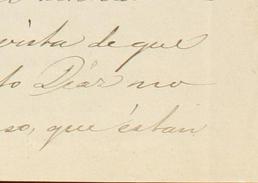 vista de que
to Diaz no
so, que éstan